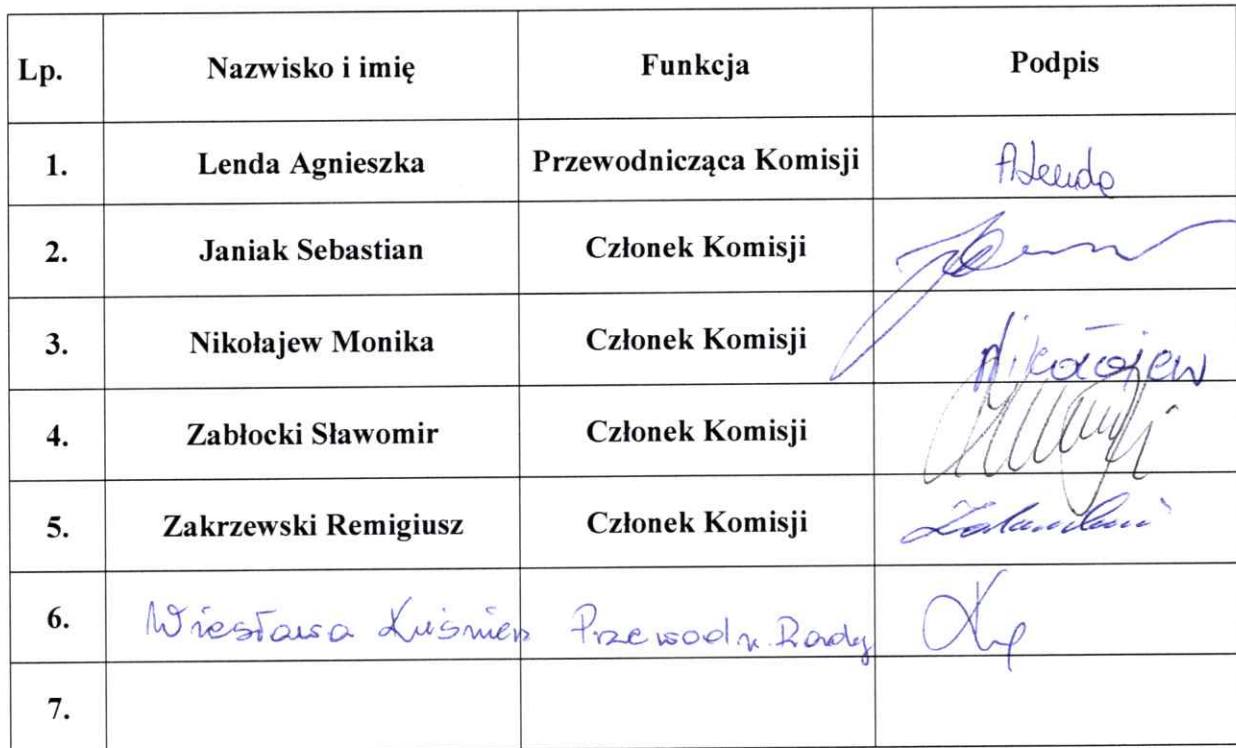 Lp. Nazwisko i imię Funkcja Podpis
1. Lenda Agnieszka Przewodnicząca Komisji ALenda
2. Janiak Sebastian Członek Komisji
3. Nikołajew Monika Członek Komisji Nikołajew
4. Zabłocki Sławomir Członek Komisji
5. Zakrzewski Remigiusz Członek Komisji
6. Wiesława Kuśnierz Przewodn. Rady
7.